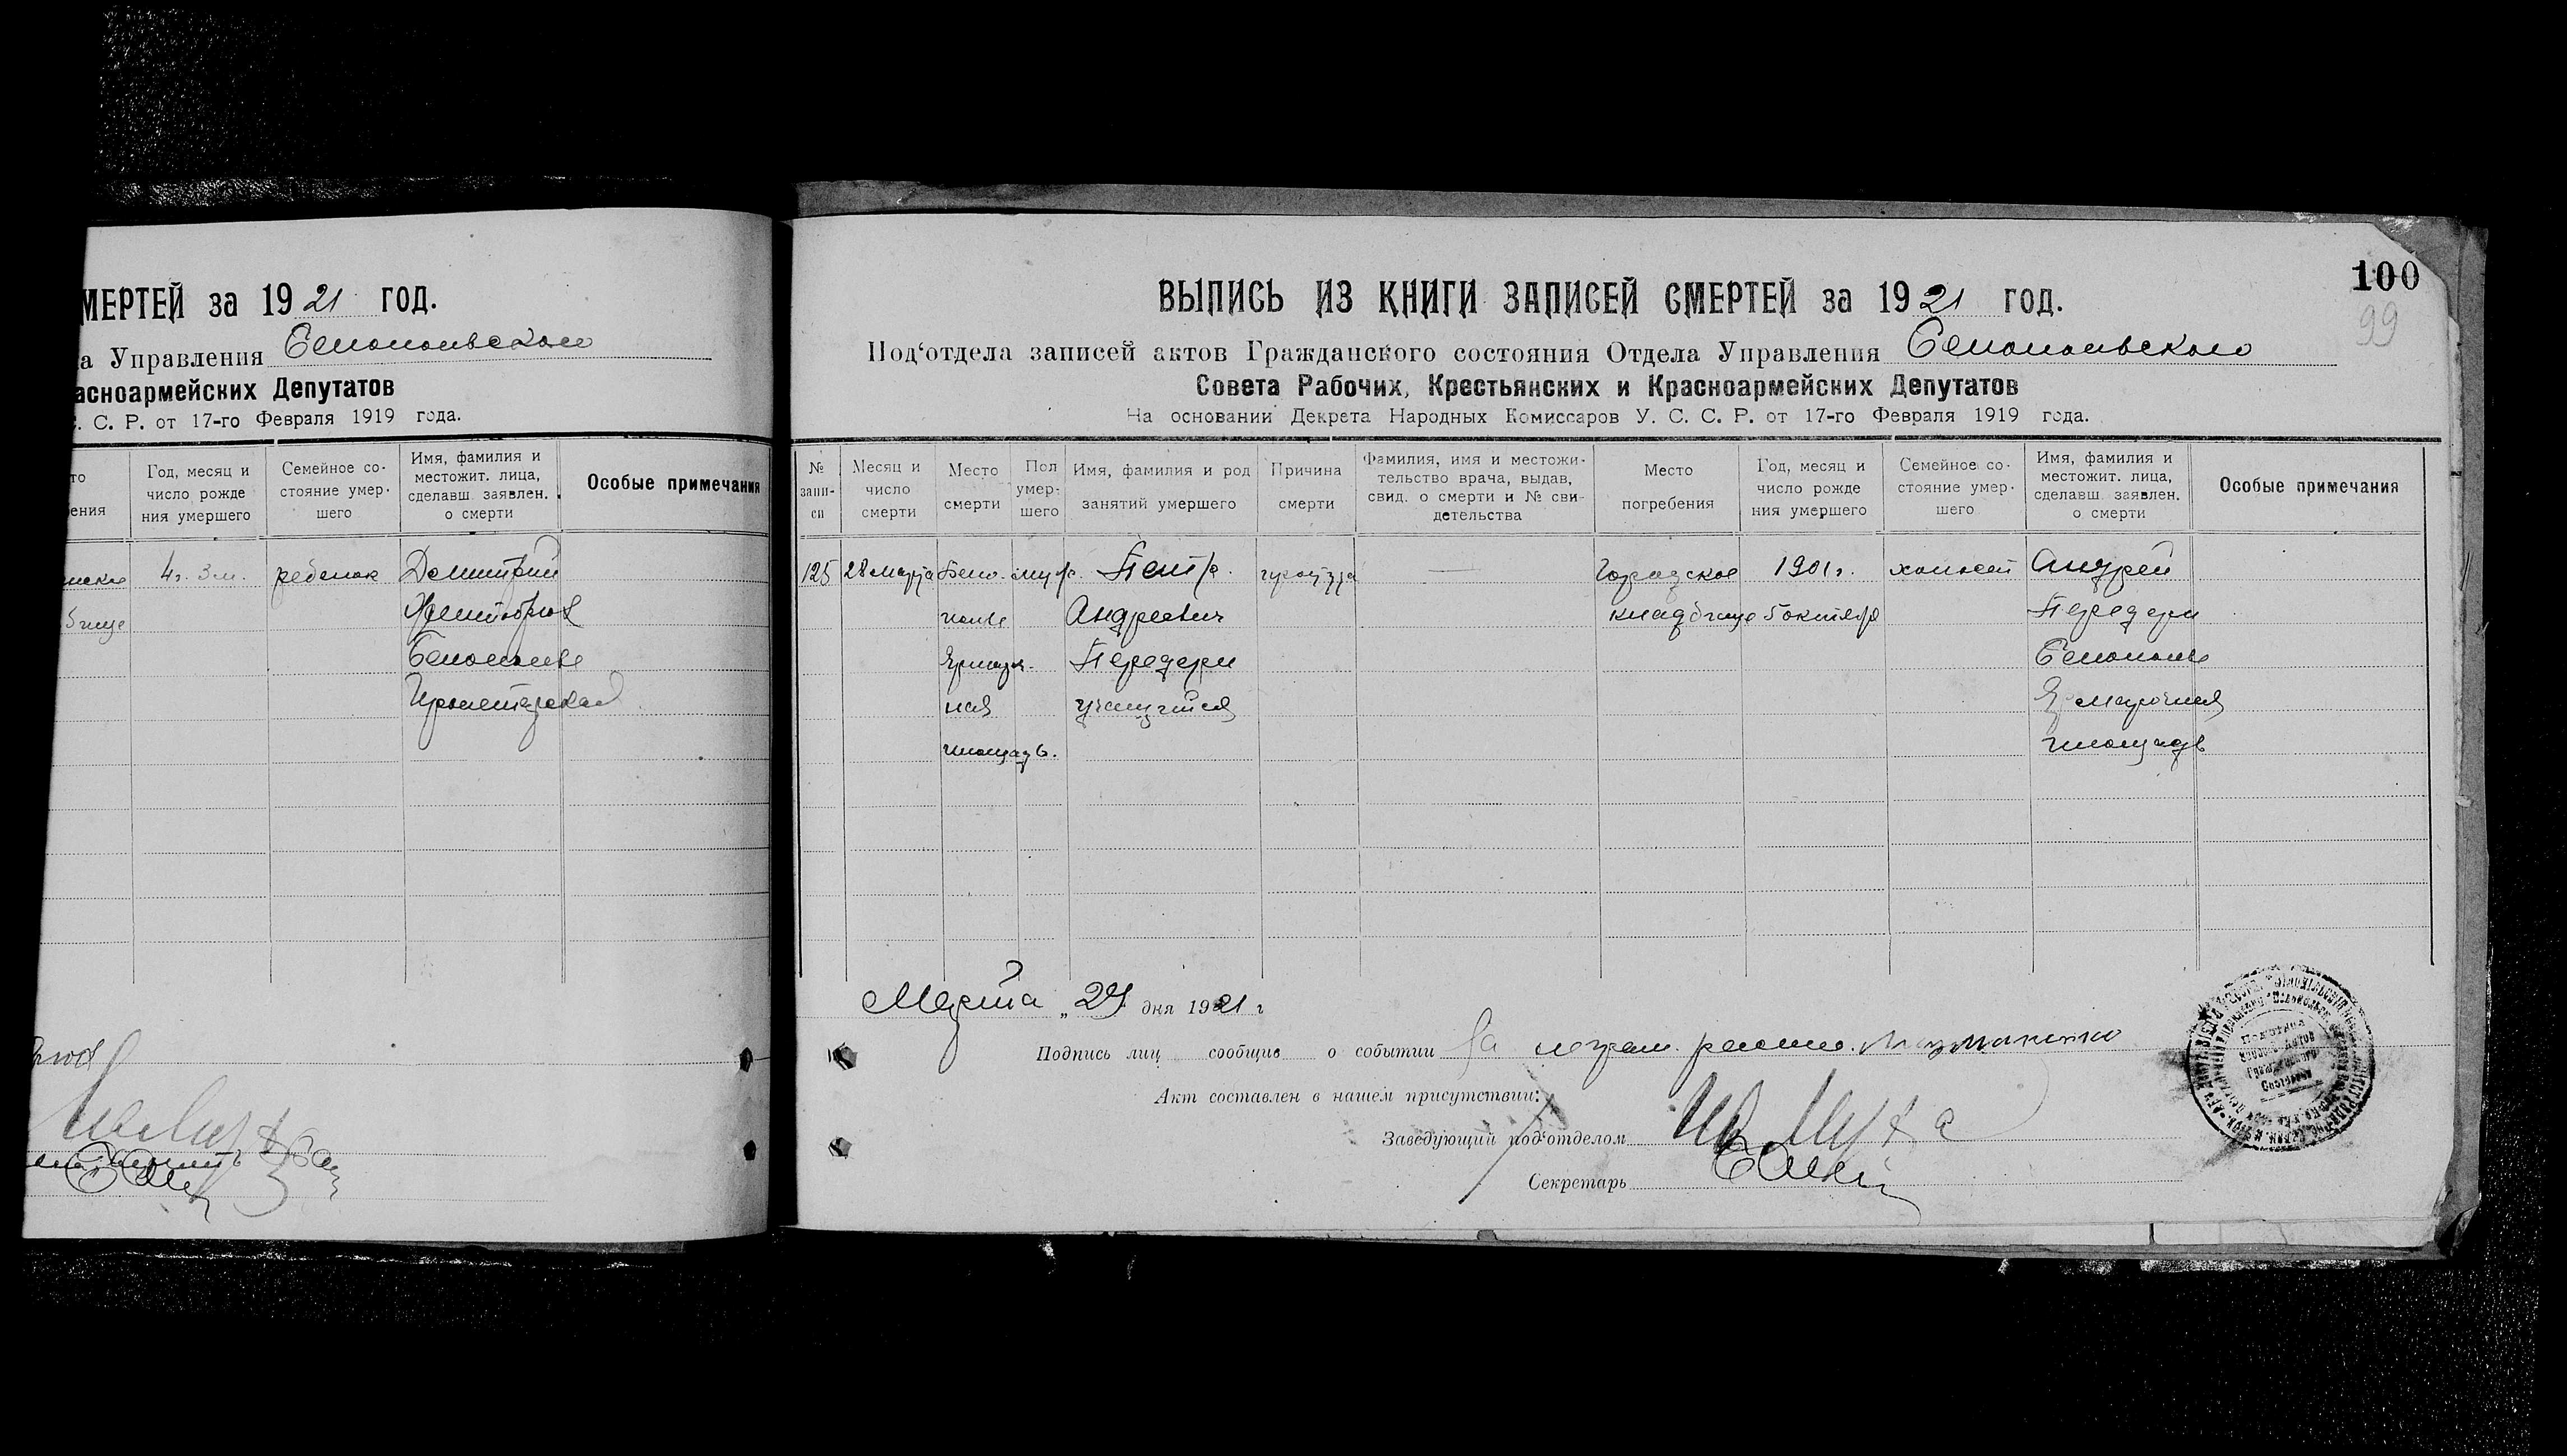 МЕРТЕЙ за 1921 год.
а Управления Белопольского
асноармейских Депутатов
С. С. Р. от 17-го Февраля 1919 года.
то
ения
Год, месяц и
число рожде
ния умершего
Семейное со-
стояние умер-
шего
Имя, фамилия и
местожит. лица,
сделавш. заявлен.
о смерти
Особые примечания
4 г. 3 м.
ребенок
Демитрий
Белополье
Пролетарская
100
99
ВЫПИСЬ ИЗ КНИГИ ЗАПИСЕЙ СМЕРТЕЙ за 1921 год.
Под'отдела записей актов Гражданского состояния Отдела Управления Белопольского
Совета Рабочих, Крестьянских и Красноармейских Депутатов
На основании Декрета Народных Комиссаров У. С. С. Р. от 17-го Февраля 1919 года.
№
запи-
си
Месяц и
число
смерти
Место
смерти
Пол
умер-
шего
Имя, фамилия и род
занятий умершего
Причина
смерти
Фамилия, имя и местожи-
тельство врача, выдав,
свид. о смерти и № сви-
детельства
Место
погребения
Год, месяц и
число рожде
ния умершего
Семейное со-
стояние умер-
шего
Имя, фамилия и
местожит. лица,
сделавш. заявлен.
о смерти
Особые примечания
125
28 марта
Бело-
полье
Ярмароч-
ная
площадь.
муж.
Петр
Андреевич
Передери
учащийся
Городское
кладбище
1901 г.
5 октября
холост
Андрей
Передери
Белополье
Ярмарочная
площадь
Марта „29 дня 1921 г
Подпись лиц сообщив о событии За неграм. распис.
Акт составлен в нашем присутствии:
Заведующий под'отделом
Секретарь